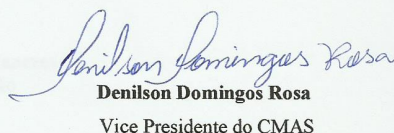 Denilson Domingos Rosa
Denilson Domingos Rosa
Vice Presidente do CMAS